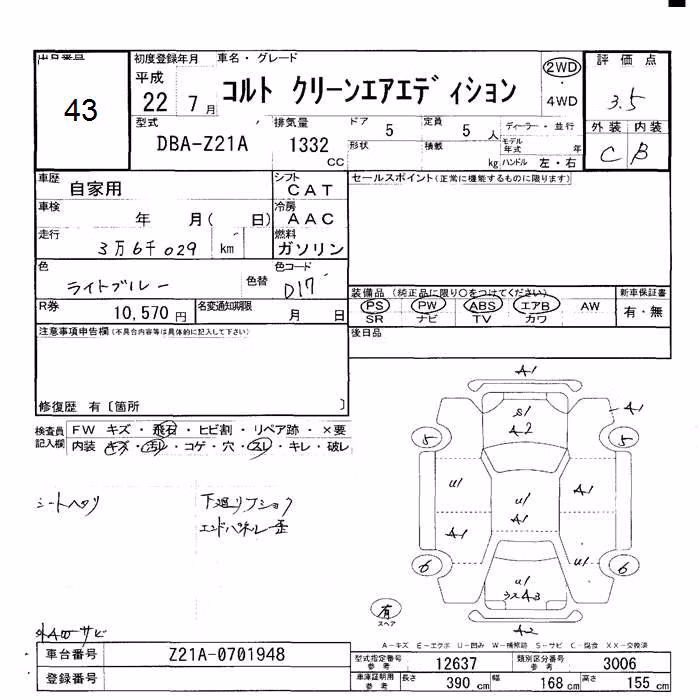 出品番号
43
初度登録年月
平成
22 7月
車名・グレード
コルト クリーンエアエディション
2WD
・
4WD
評価点
3.5
外装 内装
C B
型式
DBA-Z21A
排気量
1332
CC
ドア
5
定員
5人
形状
積載
kg
ディーラー・並行
モデル年式
年
ハンドル 左・右
車歴
自家用
シフト
CAT
車検
年 月( 日)
冷房
AAC
走行
3万6千029 km
燃料
ガソリン
色
ライトブルー
色替
色コード
D17
R券
10,570円
名変通知期限
月 日
セールスポイント(正常に機能するものに限ります)
装備品(純正品に限り○をつけてください)
PS PW ABS エアB AW
SR ナビ TV カワ
新車保証書
有・無
後日品
注意事項申告欄(不具合内容等は具体的に記入して下さい)
修復歴 有〔箇所 〕
検査員記入欄
FW キズ・飛石・ヒビ割・リペア跡・×要
内装 キズ・汚れ・コゲ・穴・スレ・キレ・破レ
シートヘタリ
下廻りフショク
エンドパネル歪
サビ
A1
S1
A2
A1
5
5
U1
U1
A1
A1
A1
U1
6
6
U1
A3
A2
有
スペア
A-キズ E-エクボ U-凹み W-補修跡 S-サビ C-腐食 XX-交換済
車台番号
Z21A-0701948
登録番号
型式指定番号
参考
12637
類別区分番号
参考
3006
車庫証明用
参考
長さ 390 cm 幅 168 cm 高さ 155 cm